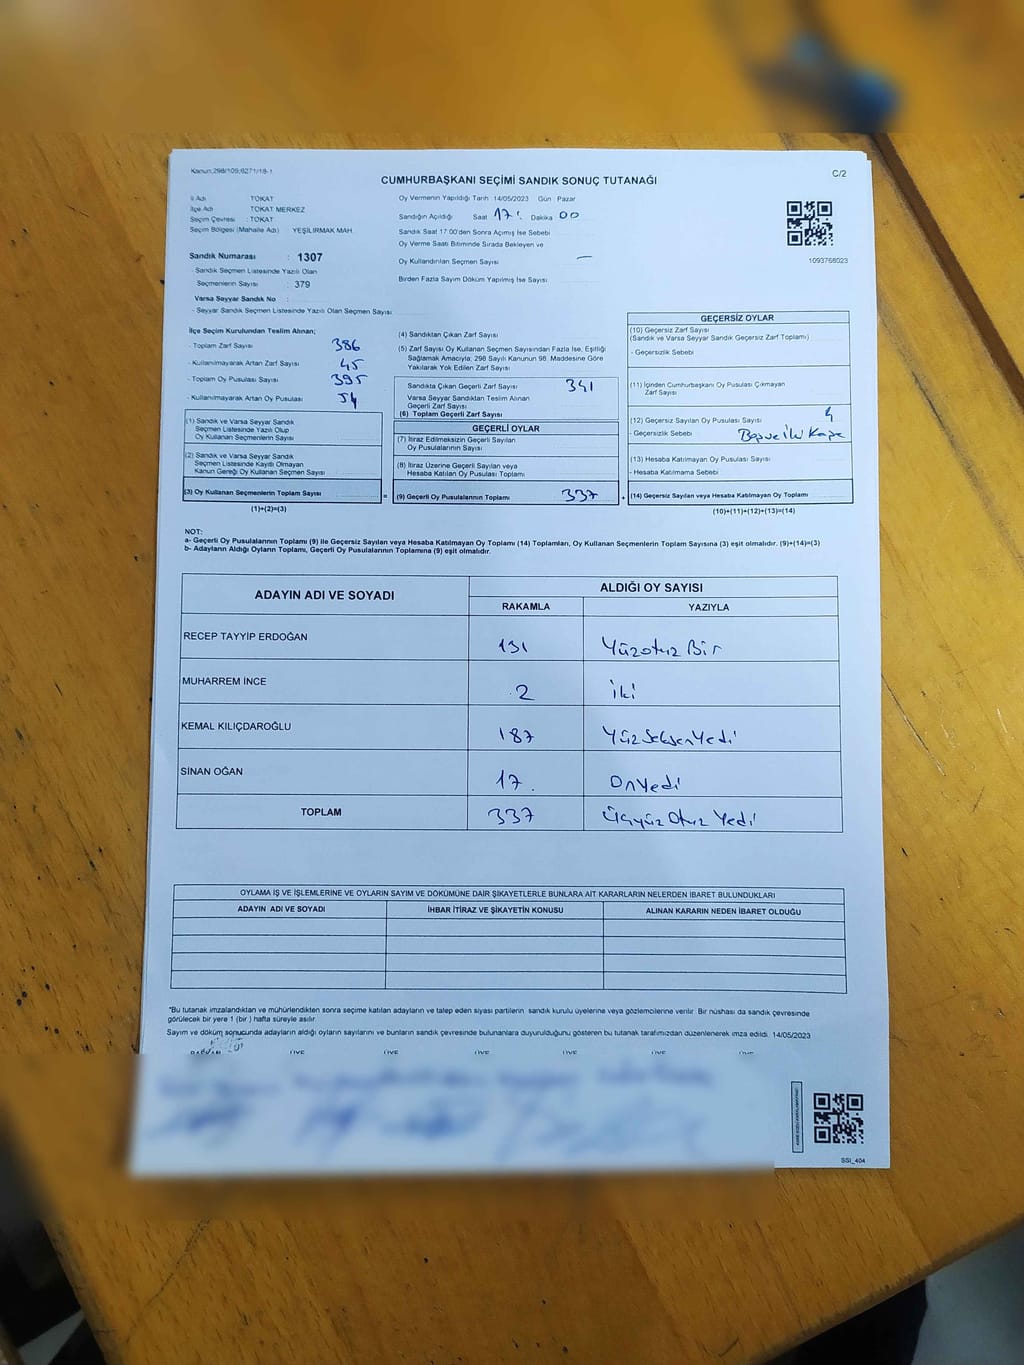 Kanun;298/109;6271/18-1
C/2
CUMHURBAŞKANI SEÇİMİ SANDIK SONUÇ TUTANAĞI
İl Adı TOKAT
İlçe Adı TOKAT MERKEZ
Seçim Çevresi : TOKAT
Seçim Bölgesi (Mahalle Adı) YEŞİLIRMAK MAH.
Sandık Numarası : 1307
- Sandık Seçmen Listesinde Yazılı Olan
Seçmenlerin Sayısı : 379
Varsa Seyyar Sandık No :
- Seyyar Sandık Seçmen Listesinde Yazılı Olan Seçmen Sayısı
Oy Vermenin Yapıldığı Tarih 14/05/2023 Gün Pazar
Sandığın Açıldığı Saat 17: Dakika 00
Sandık Saat 17:00'den Sonra Açımış İse Sebebi
Oy Verme Saati Bitiminde Sırada Bekleyen ve
Oy Kullandırılan Seçmen Sayısı —
Birden Fazla Sayım Döküm Yapılmış İse Sayısı
1093768023
İlçe Seçim Kurulundan Teslim Alınan;
- Toplam Zarf Sayısı 386
- Kullanılmayarak Artan Zarf Sayısı 45
- Toplam Oy Pusulası Sayısı 395
- Kullanılmayarak Artan Oy Pusulası 54
(1) Sandık ve Varsa Seyyar Sandık
Seçmen Listesinde Yazılı Olup
Oy Kullanan Seçmenlerin Sayısı
(2) Sandık ve Varsa Seyyar Sandık
Seçmen Listesinde Kayıtlı Olmayan
Kanun Gereği Oy Kullanan Seçmen Sayısı
(3) Oy Kullanan Seçmenlerin Toplam Sayısı =
(1)+(2)=(3)
(4) Sandıktan Çıkan Zarf Sayısı
(5) Zarf Sayısı Oy Kullanan Seçmen Sayısından Fazla İse, Eşitliği
Sağlamak Amacıyla; 298 Sayılı Kanunun 98. Maddesine Göre
Yakılarak Yok Edilen Zarf Sayısı
Sandıkta Çıkan Geçerli Zarf Sayısı 341
Varsa Seyyar Sandıktan Teslim Alınan
Geçerli Zarf Sayısı
(6) Toplam Geçerli Zarf Sayısı
GEÇERLİ OYLAR
(7) İtiraz Edilmeksizin Geçerli Sayılan
Oy Pusulalarının Sayısı
(8) İtiraz Üzerine Geçerli Sayılan veya
Hesaba Katılan Oy Pusulası Toplamı
(9) Geçerli Oy Pusulalarının Toplamı 337 +
GEÇERSİZ OYLAR
(10) Geçersiz Zarf Sayısı
(Sandık ve Varsa Seyyar Sandık Geçersiz Zarf Toplamı)
- Geçersizlik Sebebi
(11) İçinden Cumhurbaşkanı Oy Pusulası Çıkmayan
Zarf Sayısı
(12) Geçersiz Sayılan Oy Pusulası Sayısı 4
- Geçersizlik Sebebi
(13) Hesaba Katılmayan Oy Pusulası Sayısı
- Hesaba Katılmama Sebebi
(14) Geçersiz Sayılan veya Hesaba Katılmayan Oy Toplamı
(10)+(11)+(12)+(13)=(14)
NOT:
a- Geçerli Oy Pusulalarının Toplamı (9) ile Geçersiz Sayılan veya Hesaba Katılmayan Oy Toplamı (14) Toplamları, Oy Kullanan Seçmenlerin Toplam Sayısına (3) eşit olmalıdır. (9)+(14)=(3)
b- Adayların Aldığı Oyların Toplamı, Geçerli Oy Pusulalarının Toplamına (9) eşit olmalıdır.
ADAYIN ADI VE SOYADI ALDIĞI OY SAYISI
RAKAMLA YAZIYLA
RECEP TAYYİP ERDOĞAN 131 Yüzotuz Bir
MUHARREM İNCE 2 iki
KEMAL KILIÇDAROĞLU 187 Yüz Seksen Yedi
SİNAN OĞAN 17 On Yedi
TOPLAM 337 Üçyüz Otuz Yedi
OYLAMA İŞ VE İŞLEMLERİNE VE OYLARIN SAYIM VE DÖKÜMÜNE DAİR ŞİKAYETLERLE BUNLARA AİT KARARLARIN NELERDEN İBARET BULUNDUKLARI
ADAYIN ADI VE SOYADI İHBAR İTİRAZ VE ŞİKAYETİN KONUSU ALINAN KARARIN NEDEN İBARET OLDUĞU
*Bu tutanak imzalandıktan ve mühürlendikten sonra seçime katılan adayların ve talep eden siyasi partilerin sandık kurulu üyelerine veya gözlemcilerine verilir. Bir nüshası da sandık çevresinde
görülecek bir yere 1 (bir ) hafta süreyle asılır.
Sayım ve döküm sonucunda adayların aldığı oyların sayılarını ve bunların sandık çevresinde bulunanlara duyurulduğunu gösteren bu tutanak tarafımızdan düzenlenerek imza edildi. 14/05/2023
BAŞKAN ÜYE ÜYE ÜYE ÜYE ÜYE ÜYE
SSI_404